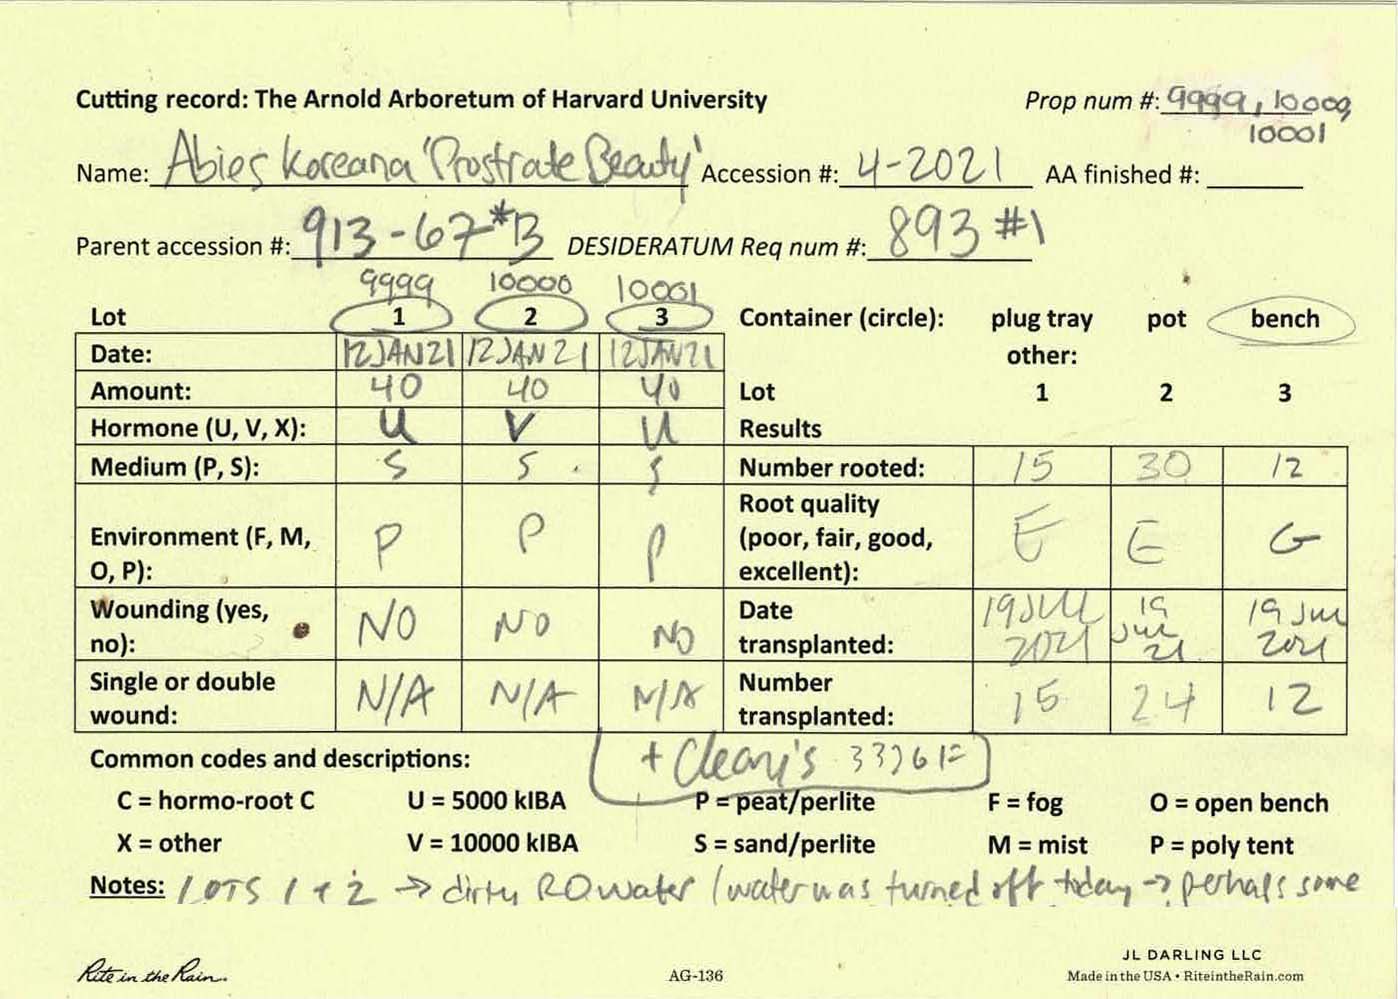 Cutting record: The Arnold Arboretum of Harvard University Prop num #: 9999, 10000,
10001
Name: Abies koreana 'Prostrate Beauty' Accession #: 4-2021 AA finished #:
Parent accession #: 913-67*B DESIDERATUM Req num #: 893 #1
9999 10000 10001
Lot 1 2 3 Container (circle): plug tray pot bench
Date: 12JAN21 12JAN21 12JAN21 other:
Amount: 40 40 40 Lot 1 2 3
Hormone (U, V, X): U V U Results
Medium (P, S): S S S Number rooted: 15 30 12
Environment (F, M, O, P): P P P Root quality (poor, fair, good, excellent): E E G
Wounding (yes, no): NO NO NO Date transplanted: 19 JUL 2021 19 Jul 21 19 Jul 2021
Single or double wound: N/A N/A N/A Number transplanted: 15 24 12
+ Cleary's 3336F
Common codes and descriptions:
C = hormo-root C U = 5000 kIBA P = peat/perlite F = fog O = open bench
X = other V = 10000 kIBA S = sand/perlite M = mist P = poly tent
Notes: LOTS 1 + 2 → dirty RO water / water was turned off today → perhaps some
Rite in the Rain AG-136 JL DARLING LLC
Made in the USA • RiteintheRain.com